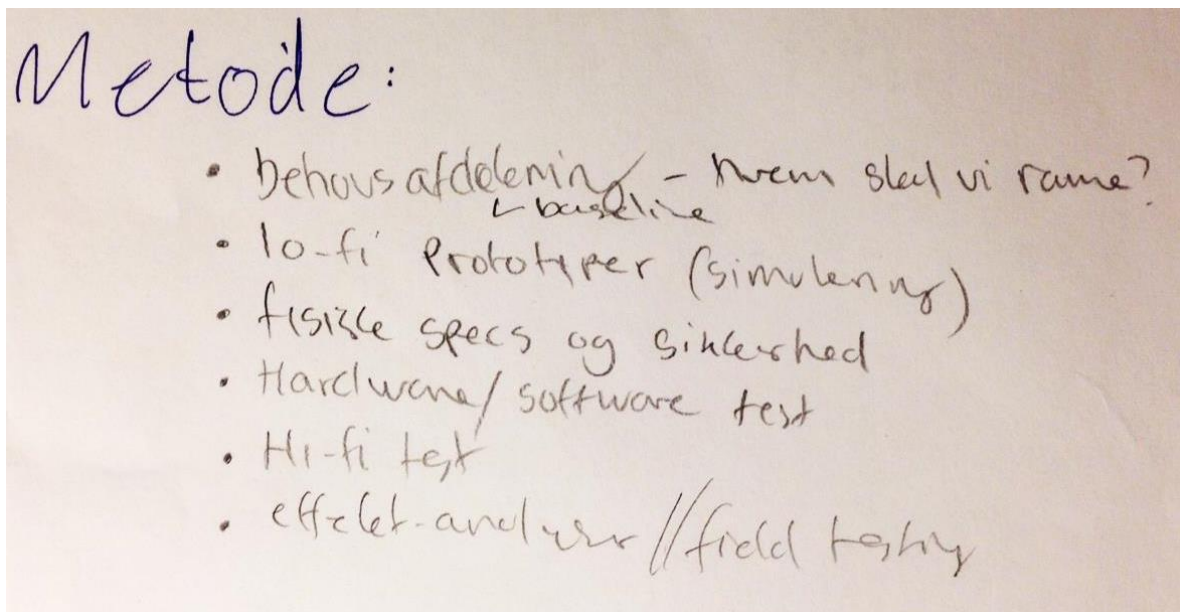 Metode:
• Behovsafdelening - hvem skal vi rame?
↳ baseline
• lo-fi prototyper (simulering)
• fisiske specs og sikkerhed
• Hardware/software test
• Hi-fi test
• effekt-analyser // field testing